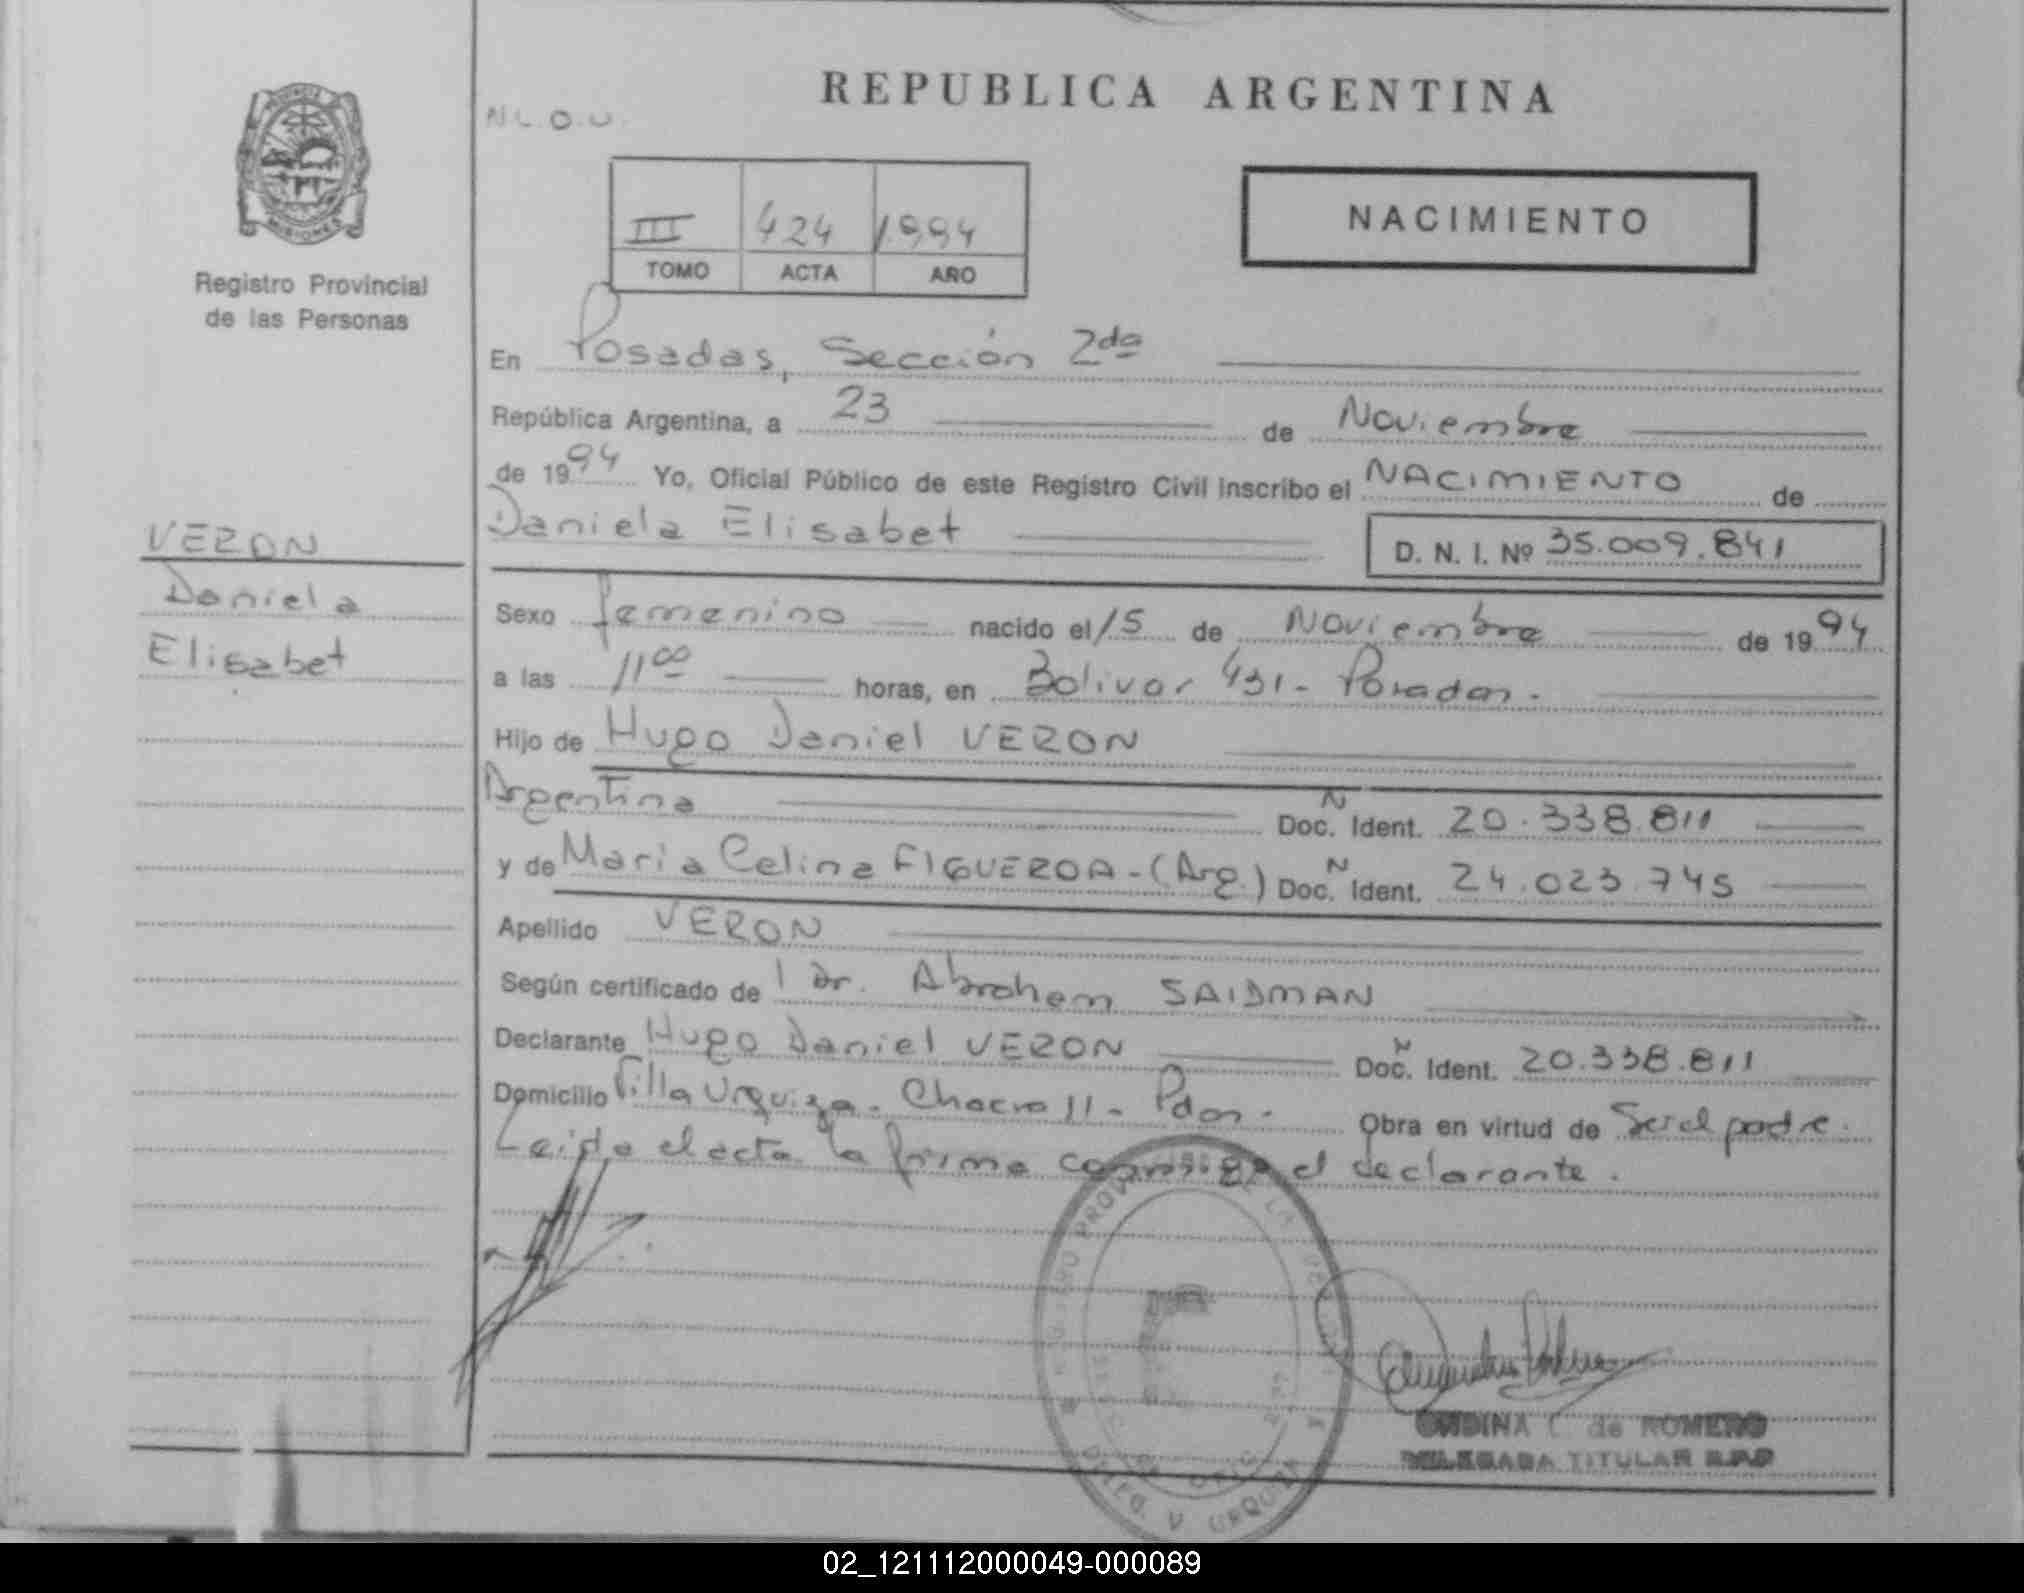 REPUBLICA ARGENTINA
N L. O. U.
NACIMIENTO
III 424 1.994
TOMO ACTA AÑO
PROVINCIA
MISIONES
Registro Provincial
de las Personas
En Posadas, Sección 2da
República Argentina, a 23 de Noviembre
de 1994 Yo, Oficial Público de este Registro Civil inscribo el NACIMIENTO de
Daniela Elisabet
D. N. I. Nº 35.009.841
VERON
Daniela
Elisabet
Sexo femenino nacido el 15 de Noviembre de 1994
a las 11oo horas, en Bolivar 431 - Posadas.
Hijo de Hugo Daniel VERON
Argentina Doc. Ident. 20.338.811
y de Maria Celina FIGUEROA - (Arg.) Doc. Ident. 24.023.745
Apellido VERON
Según certificado de l Dr. Abraham SAIDMAN
Declarante Hugo Daniel VERON Doc. Ident. 20.338.811
Domicilio Villa Urquiza - Chacra 11 - Pdas. Obra en virtud de Ser el padre.
Leida el acta la firma conmigo el declarante.
ONDINA C de ROMERO
DELEGADA TITULAR R.P.P
02_121112000049-000089